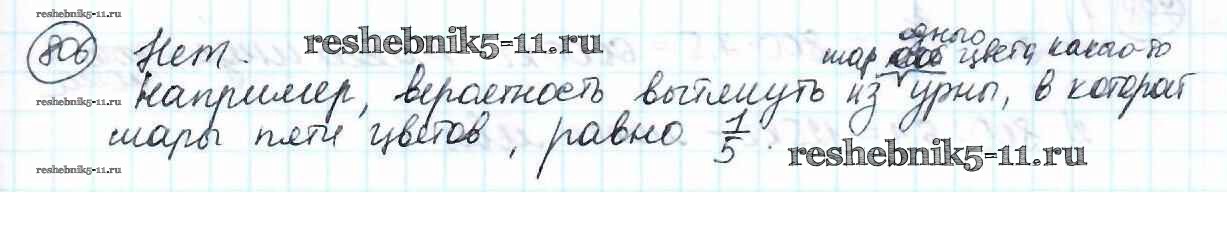 reshebnik5-11.ru
806 Нет. reshebnik5-11.ru
шар одного цвета какого-то
reshebnik5-11.ru Например, вероятность вытянуть из урны, в которой
шары пяти цветов, равно 1/5. reshebnik5-11.ru
reshebnik5-11.ru